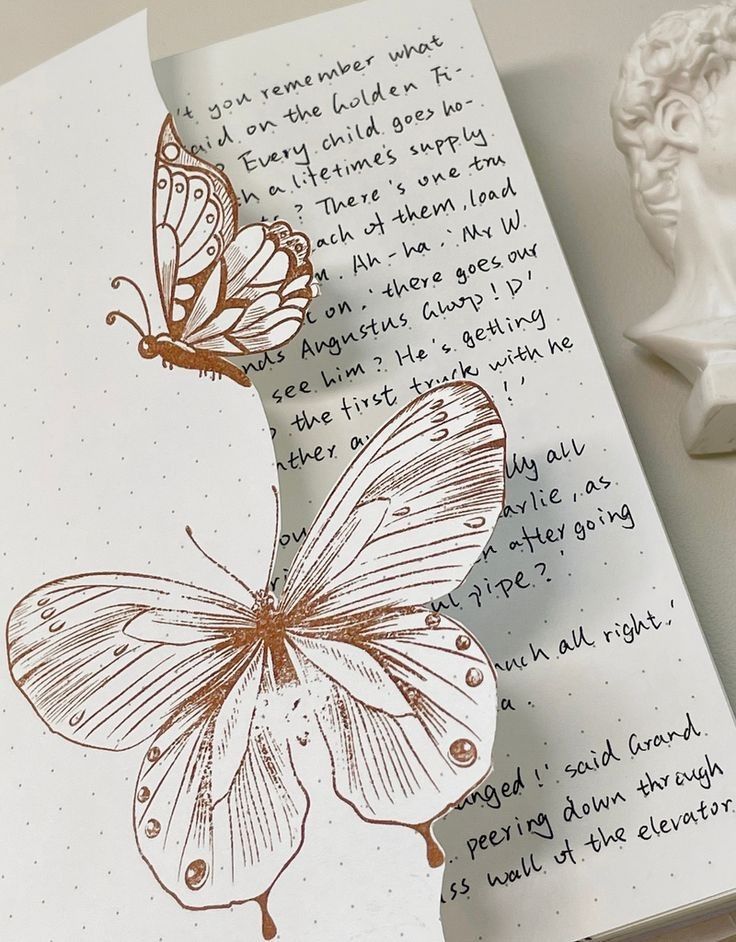 't you remember what
aid on the Golden Ti-
Every child goes ho-
h a lifetime's supply
? There's one tru
ach of them, load
. Ah-ha.' Mr W
t on. 'there goes our
nds Augustus Gloop! D'
see him? He's getling
the first truck with he
ther a !'
lly all
ou arlie, as
n after going
ul pipe?'
much all right.'
a.
anged!' said Grand
.. peering down through
ss wall of the elevator